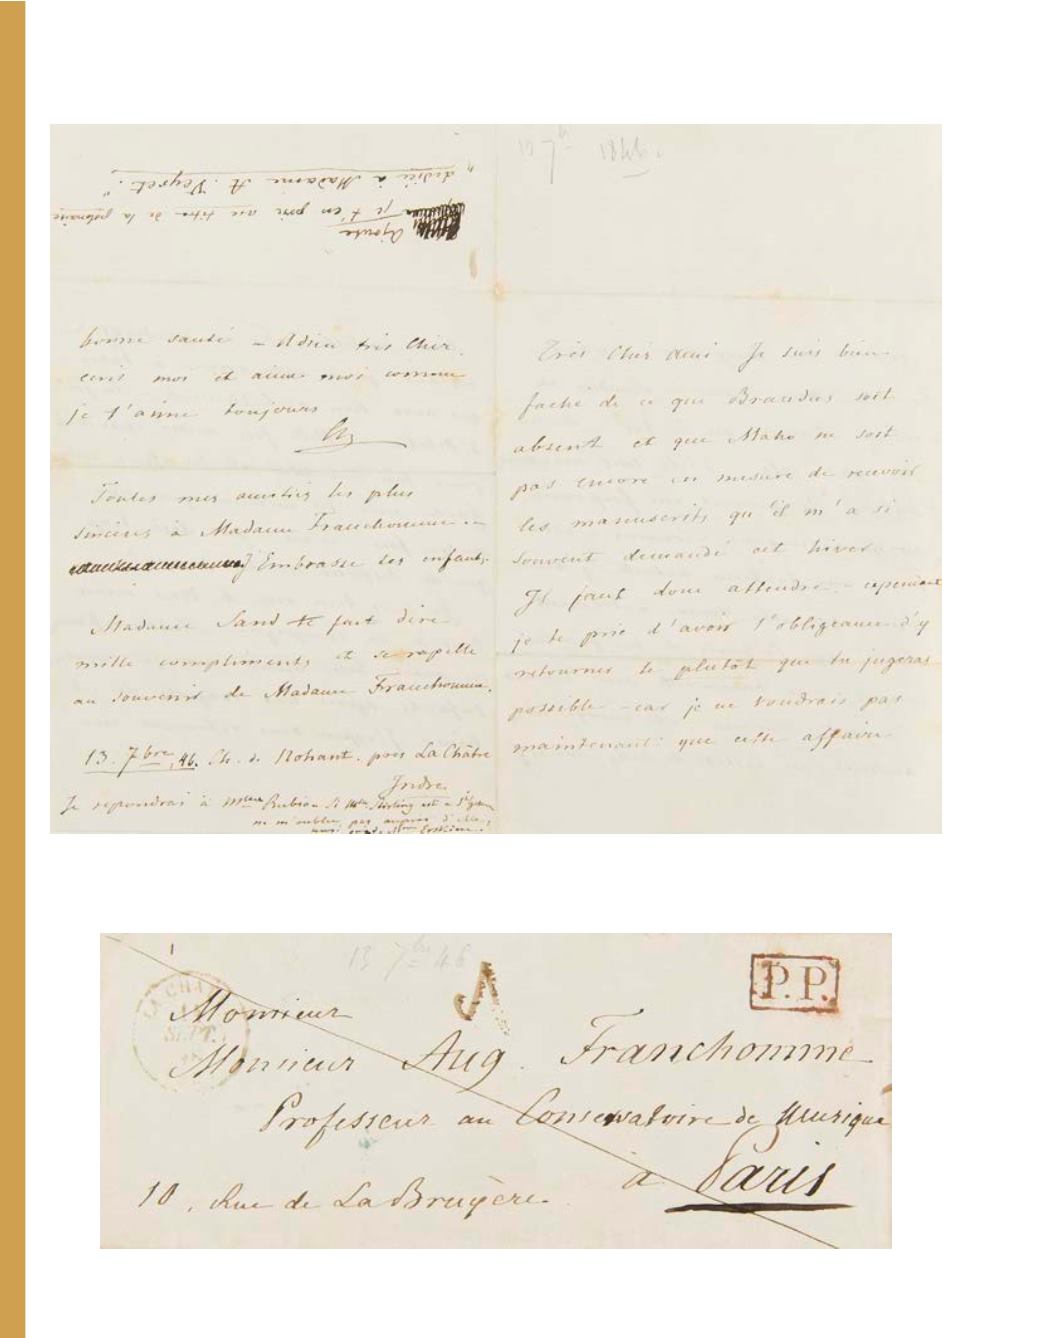 13 7bre 1846.
Très Cher ami Je suis bien
faché de ce que Brandus soit
absent et que Maho ne soit
pas encore en mesure de recevoir
les manuscrits qu'il m'a si
souvent demandé cet hiver.
Il faut donc attendre – cependant
je te prie d'avoir l'obligeance d'y
retourner le plutôt que tu jugeras
possible – car je ne voudrais pas
maintenant que cette affaire
bonne santé – Adieu très Cher.
ecris moi et aime moi comme
je t'aime toujours
Ch
Toutes mes amitiés les plus
sincères à Madame Franchomme. –
Embrasse tes enfants.
Madame Sand te fait dire
mille compliments et se rapelle
au souvenir de Madame Franchomme.
13. 7bre, 46. Ch. de Nohant. près La Châtre
Indre
Je repondrai à Mlle Rubio. Si Mlle Stirling est à St
ne m'oublie pas auprès d'elle,
Mme Erskine.
Ajoute
je t'en prie au titre de la polonaise
„ dediée à Madame A. Veyret."
13 7bre 46
1
LA CHA
SEPT.
P.P.
Monsieur
Monsieur Aug. Franchomme
Professeur au Conservatoire de Musique
à Paris
10, Rue de La Bruyère.